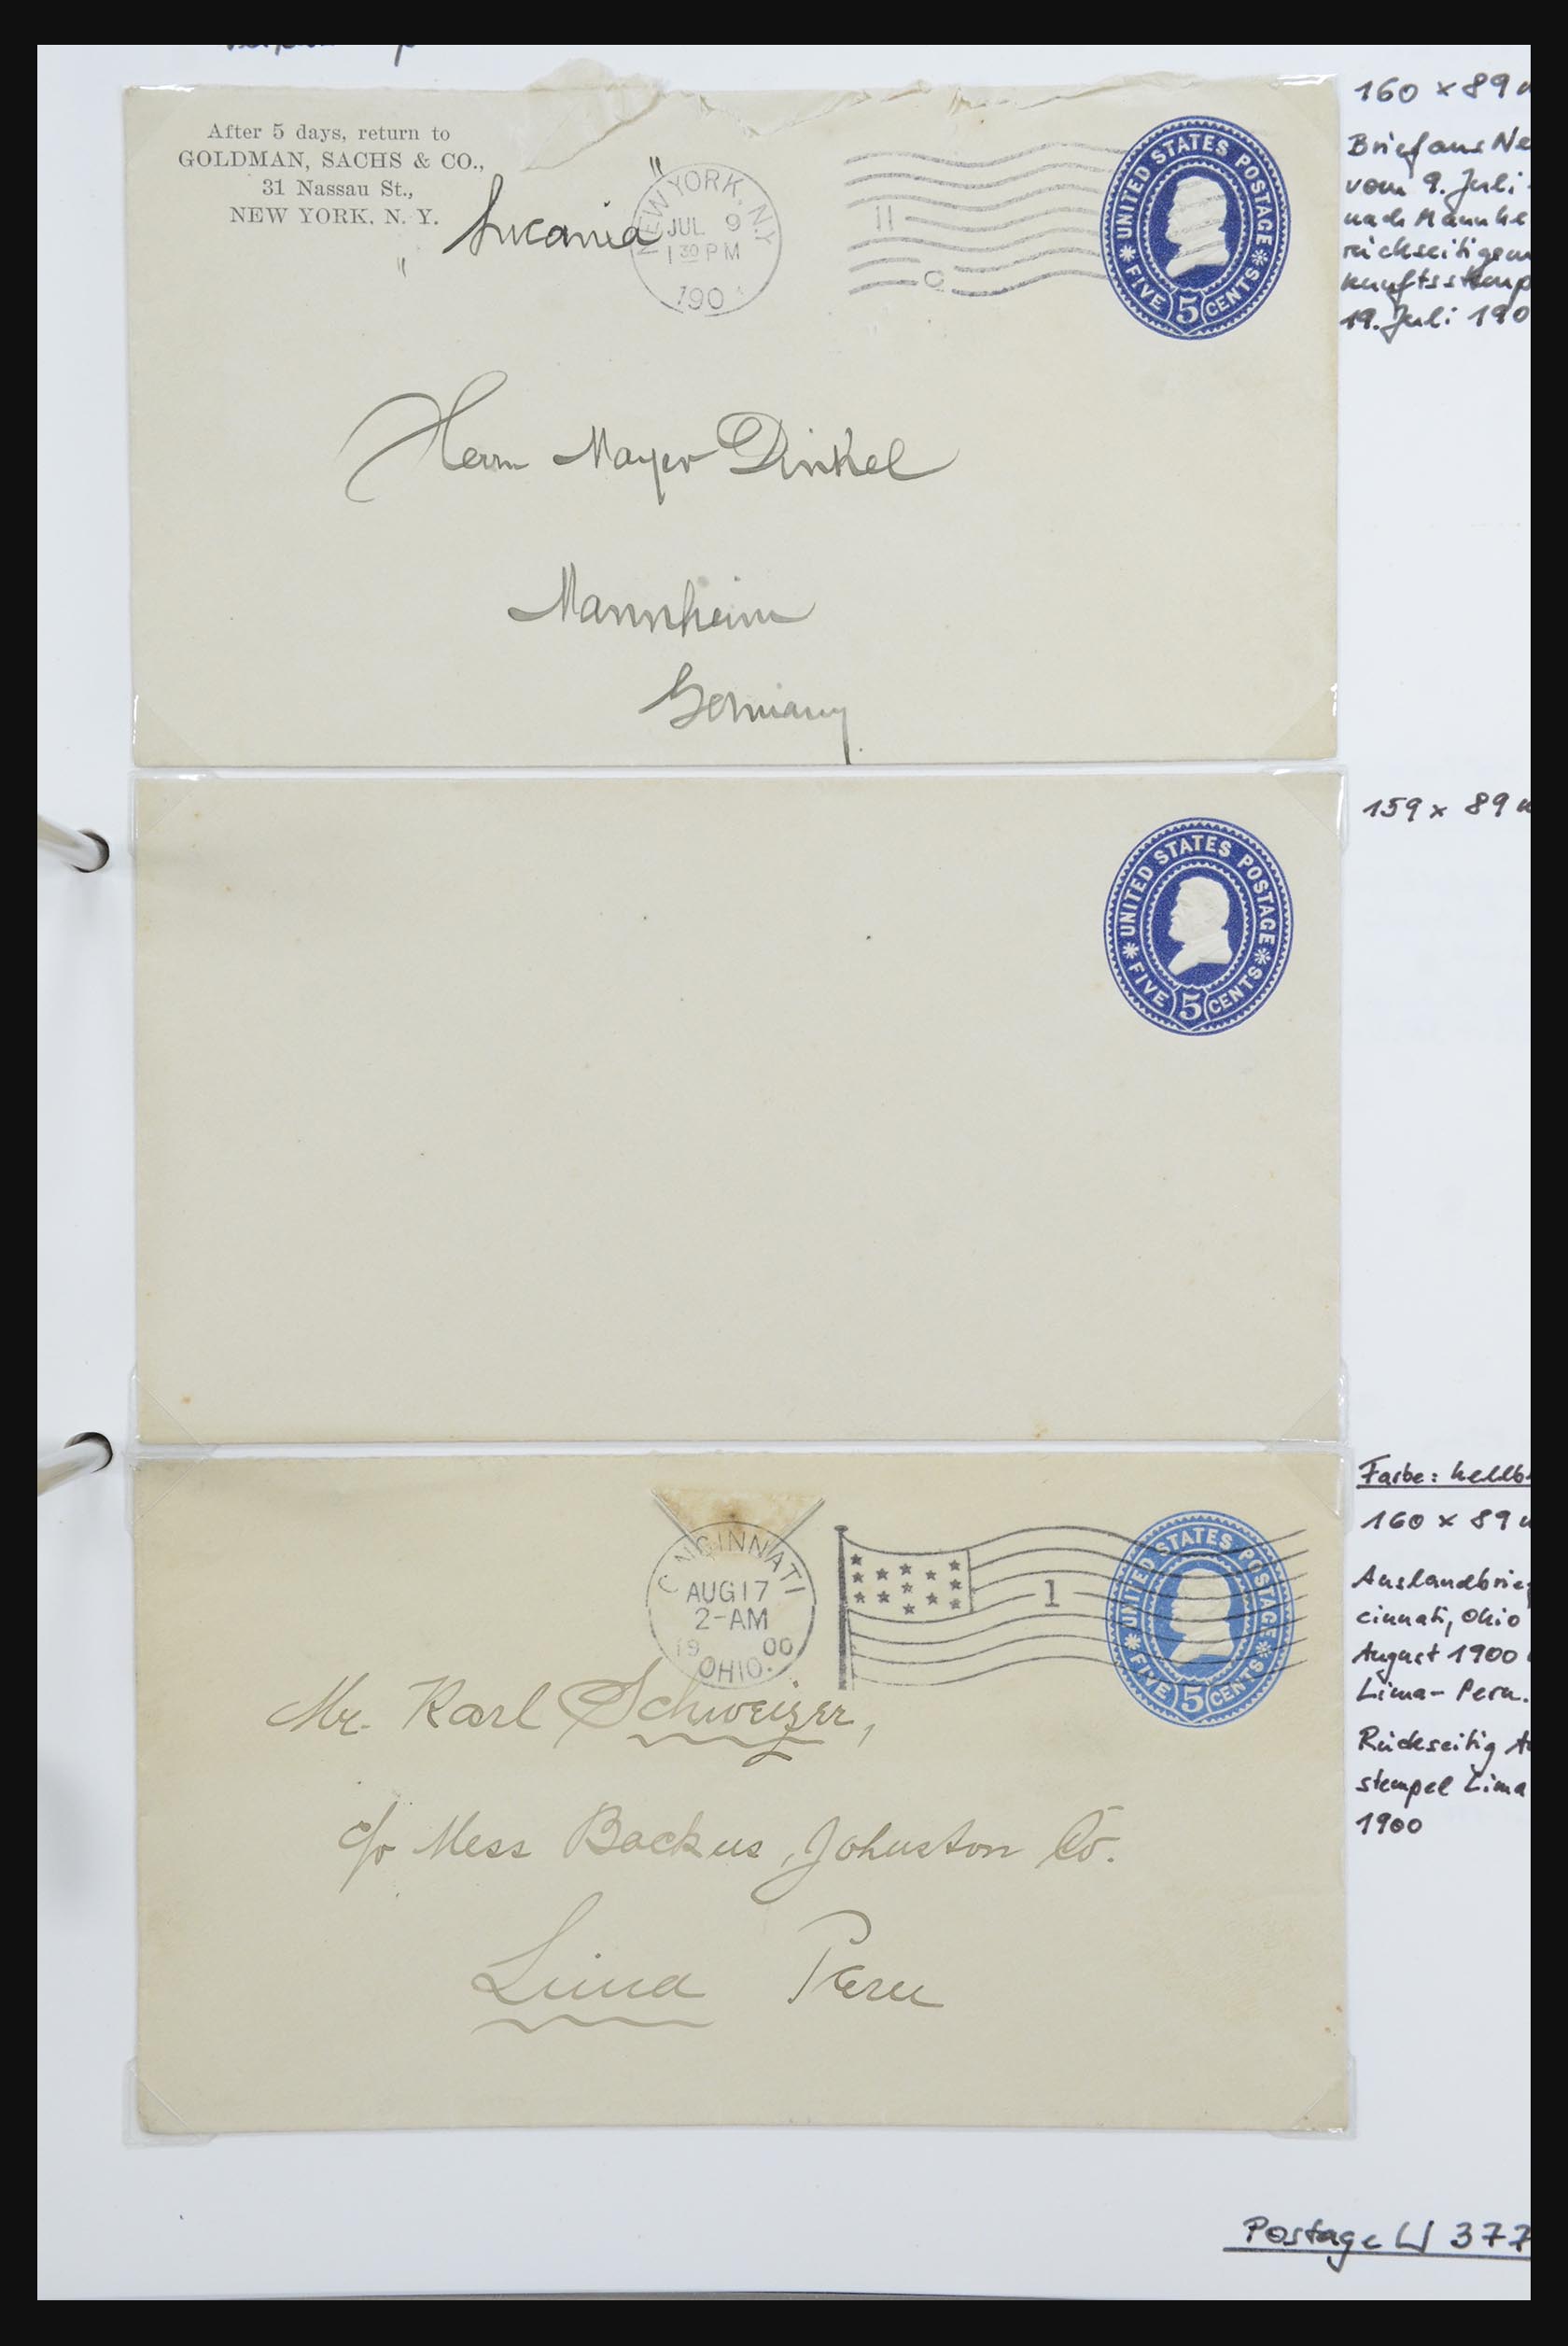 After 5 days, return to
GOLDMAN, SACHS & CO.,
31 Nassau St.,
NEW YORK, N. Y.
"Lucania"
NEW YORK, N.Y.
JUL 9
1 30 PM
190
UNITED STATES POSTAGE
FIVE 5 CENTS
Herrn Mayer Dinkel
Mannheim
Germany
160 x 89
Brief aus Ne
vom 9. Juli
nach Mannhe
rückseitigem
kunftsstemp
19. Juli 190
UNITED STATES POSTAGE
FIVE 5 CENTS
159 x 89
CINCINNATI
AUG 17
2-AM
19 00
OHIO.
1
UNITED STATES POSTAGE
FIVE 5 CENTS
Mr. Karl Schweizer,
c/o Mess Backus, Johnston Co.
Lima Peru
Farbe: hellb
160 x 89
Auslandbrief
cinnati, Ohio
August 1900
Lima - Peru.
Rückseitig
stempel Lima
1900
Postage U 377